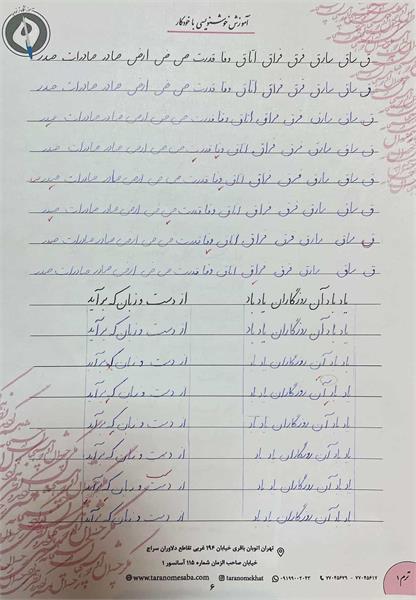 آموزش خوشنویسی با خودکار
ق ساق سارق فرق فراق اتاق وفا قدرت ص ض ارض صادر صادرات صدر
ق ساق سارق فرق فراق اتاق وفا قدرت ص ض ارض صادر صادرات صدر
ق ساق سارق فرق فراق اتاق وفا قدرت ص ض ارض صادر صادرات صدر
ق ساق سارق فرق فراق اتاق وفا قدرت ص ض ارض صادر صادرات صدر
ق ساق سارق فرق فراق اتاق وفا قدرت ص ض ارض صادر صادرات صدر
ق ساق سارق فرق فراق اتاق وفا قدرت ص ض ارض صادر صادرات صدر
ق ساق سارق فرق فراق اتاق وفا قدرت ص ض ارض صادر صادرات صدر
ق ساق سارق فرق فراق اتاق وفا قدرت ص ض ارض صادر صادرات صدر
یاد باد آن روزگاران یاد باد از دست و زبان که برآید
یاد باد آن روزگاران یاد باد از دست و زبان که برآید
یاد باد آن روزگاران یاد باد از دست و زبان که برآید
یاد باد آن روزگاران یاد باد از دست و زبان که برآید
یاد باد آن روزگاران یاد باد از دست و زبان که برآید
یاد باد آن روزگاران یاد باد از دست و زبان که برآید
یاد باد آن روزگاران یاد باد از دست و زبان که برآید
یاد باد آن روزگاران یاد باد از دست و زبان که برآید
تهران اتوبان باقری خیابان ۱۹۶ غربی تقاطع دلاوران سراج
خیابان صاحب الزمان شماره ۱۱۵ آسانسور ۱
ترم ۱
۷۷۰۴۵۶۱۷ - ۷۷۰۴۵۶۷۹ ۰۹۱۹۹۰۰۲۰۲۲ taranomekhat www.taranomesaba.com
۶